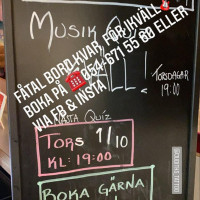 MUSIK
FÅTAL BORD KVAR FÖR IKVÄLL
BOKA PÅ ☎ 054-671 55 80 ELLER
VIA FB & INSTA
TORSDAGAR
19:00
NÄSTA QUIZ
TORS 1/10
KL: 19:00
BOKA GÄRNA